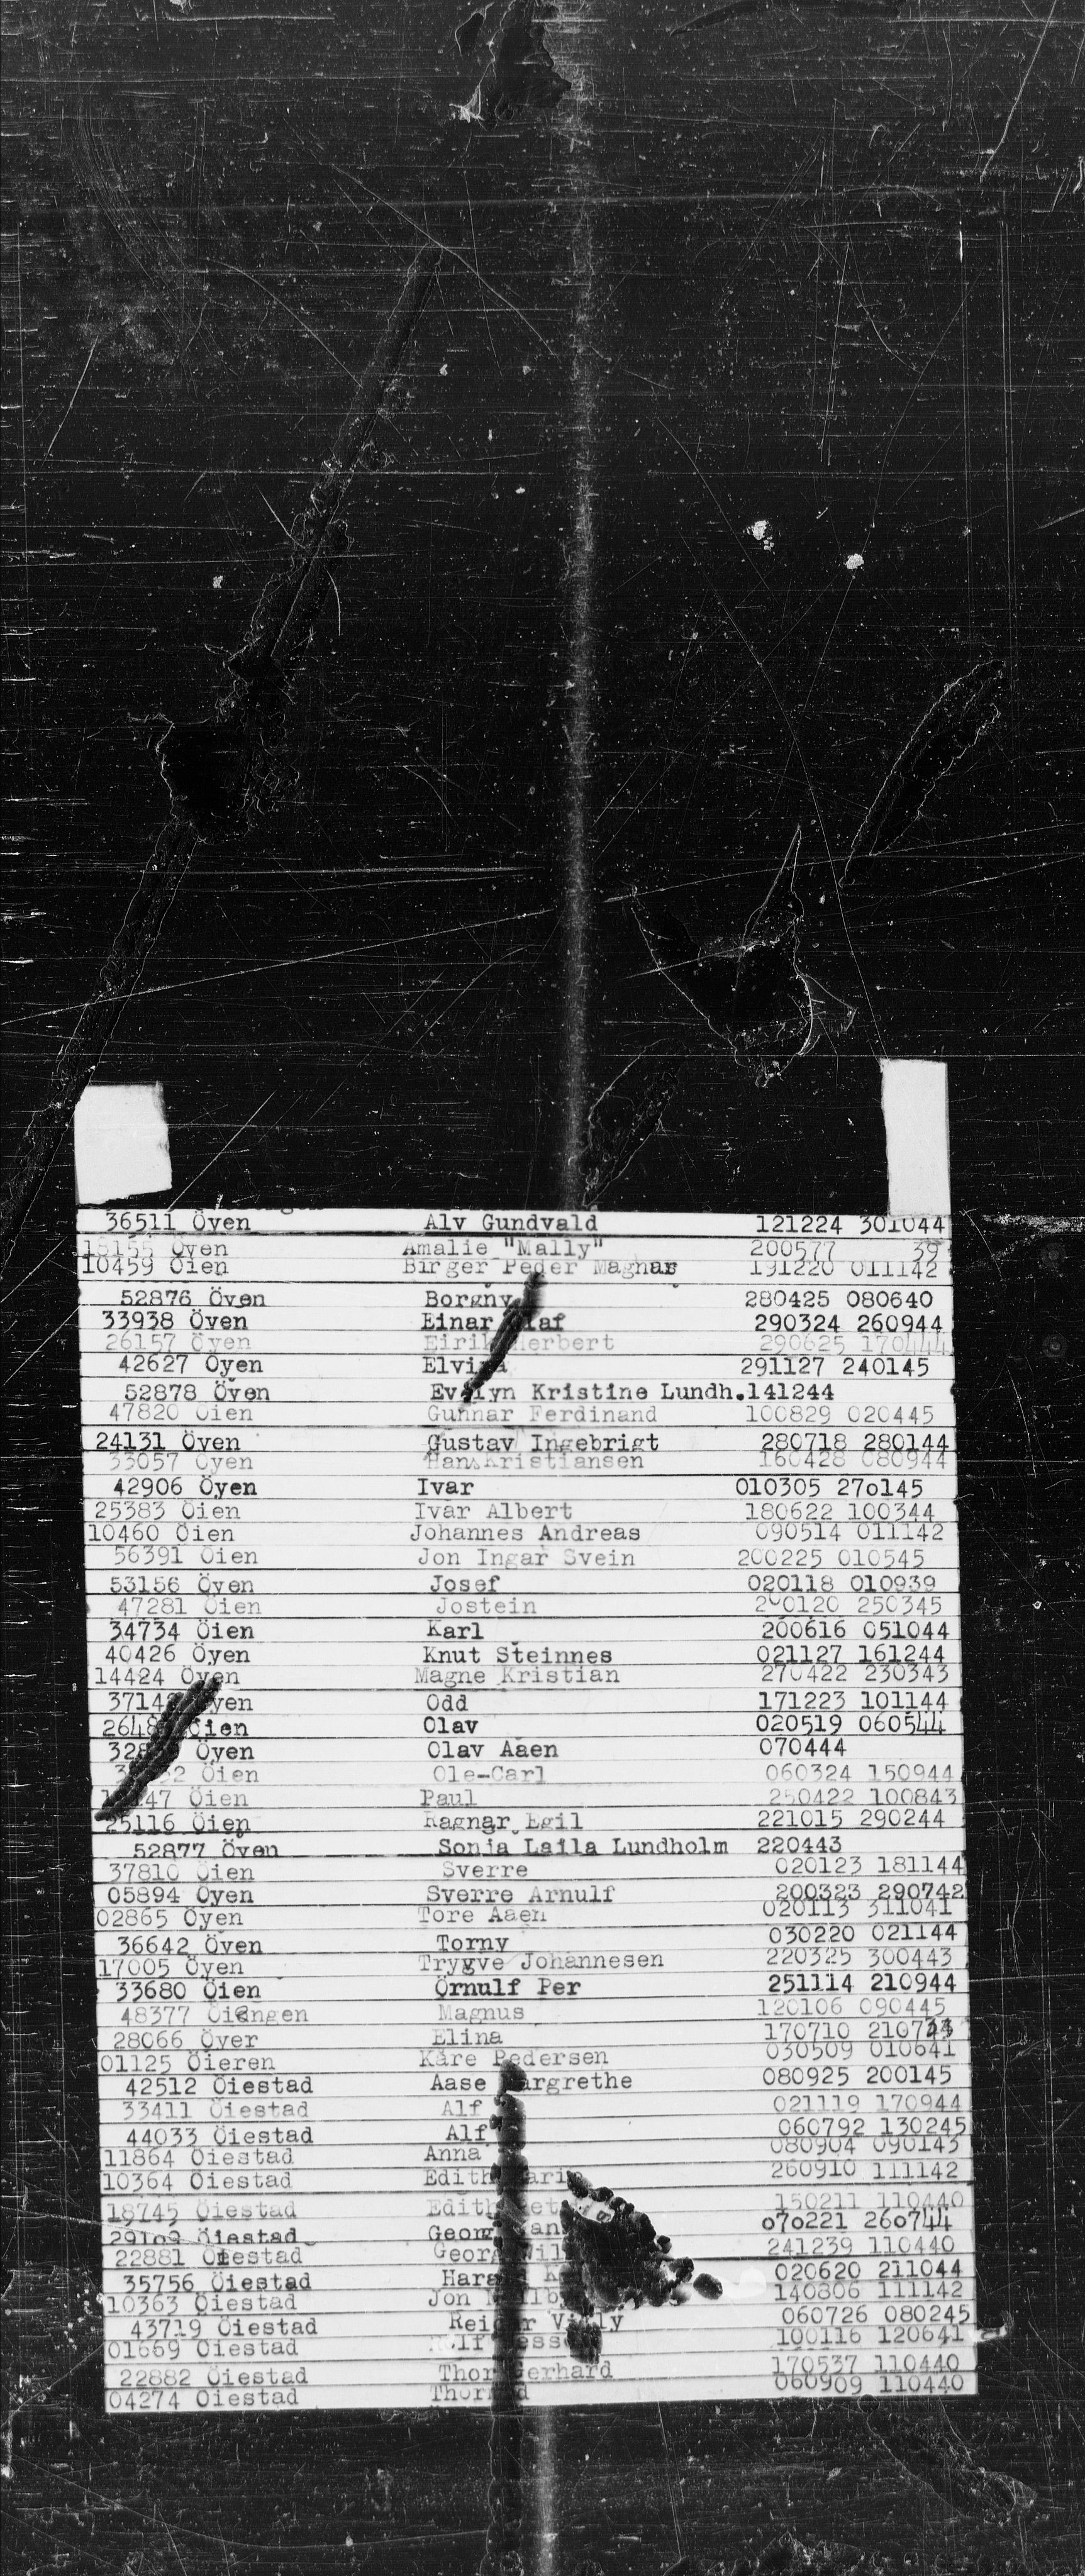 36511 Öyen Alv Gundvald 121224 301044
Öyen Amalie "Mally" 200577 39
10459 Öien Birger Peder Magnar 191220 011142
52876 Öyen Borgny 280425 080640
33938 Öyen Einar 290324 260944
26157 Öyen Eirik Herbert 290625 170444
42627 Öyen 291127 240145
52878 Öyen Evelyn Kristine Lundh.141244
47820 Öien Gunnar Ferdinand 100829 020445
24131 Öyen Gustav Ingebrigt 280718 280144
33057 Öyen 160428 080944
42906 Öyen Ivar 010305 270145
25383 Öien Ivar Albert 180622 100344
10460 Öien Johannes Andreas 090514 011142
56391 Öien Jon Ingar Svein 200225 010545
53156 Öyen Josef 020118 010939
47281 Öien Jostein 250345
34734 Öien Karl 200616 051044
40426 Öyen Knut Steinnes 021127 161244
14424 Öyen Magne Kristian 270422 230343
Öyen Odd 171223 101144
Öien Olav 020519 060544
Öyen Olav Aaen 070444
Öien Ole-Carl 060324 150944
Öien Paul 250422 100843
25116 Öien Ragnar Egil 221015 290244
52877 Öyen Sonja Laila Lundholm 220443
37810 Öien Sverre 020123 181144
05894 Öyen Sverre Arnulf 200323 290742
02865 Öyen Tore Aaen 020113 311041
36642 Öyen Torny 030220 021144
17005 Öyen Trygve Johannesen 220325 300443
33680 Öien Örnulf Per 251114 210944
48377 Öiengen Magnus 120106 090445
28066 Över Elina 170710
01125 Öieren Kåre Pedersen 030509 010641
42512 Öiestad Aase Margrethe 080925 200145
33411 Öiestad Alf 021119 170944
44033 Öiestad Alf 060792 130245
11864 Öiestad Anna 080904 090143
10364 Öiestad Edith 260910 111142
18745 Öiestad Edith 150211 110440
29109 Öiestad Georg 070221 260744
22881 Öiestad Georg 241239 110440
35756 Öiestad 020620 211044
10363 Öiestad Jon 140806 111142
43719 Öiestad Reidar Villy 060726 080245
01669 Öiestad 100116 120641
22882 Öiestad Thor Gerhard 170537 110440
04274 Öiestad 060909 110440